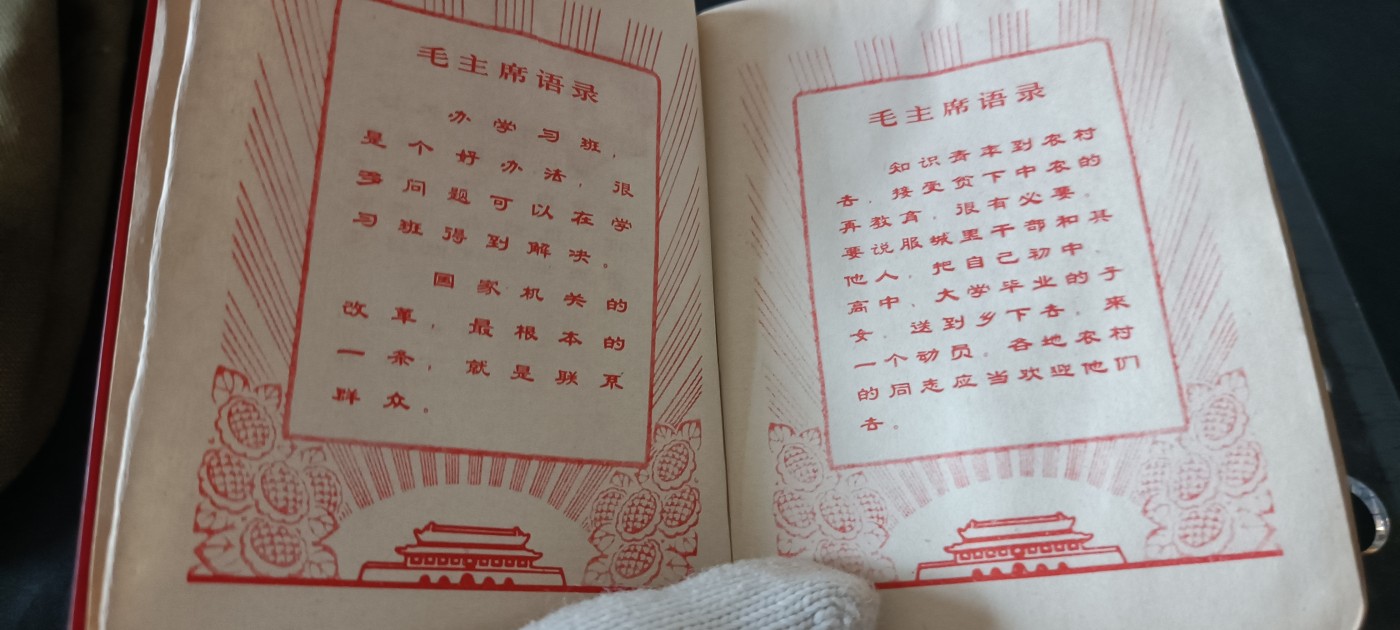 毛主席语录
办学习班，
是个好办法，很
多问题可以在学
习班得到解决。
国家机关的
改革，最根本的
一条，就是联系
群众。
毛主席语录
知识青年到农村
去，接受贫下中农的
再教育，很有必要。
要说服城里干部和其
他人，把自己初中、
高中、大学毕业的子
女，送到乡下去，来
一个动员。各地农村
的同志应当欢迎他们
去。